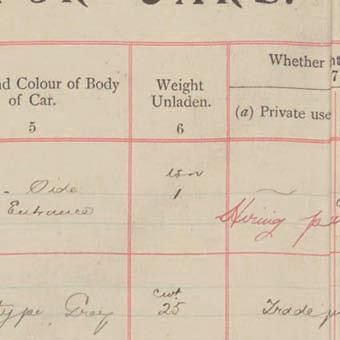 CARS.
Whether
7
nd Colour of Body
of Car.
Weight
Unladen.
(a) Private use
5
6
ton
1
- Side
Entrance
Hiring
cwt
25
type Grey
Trade